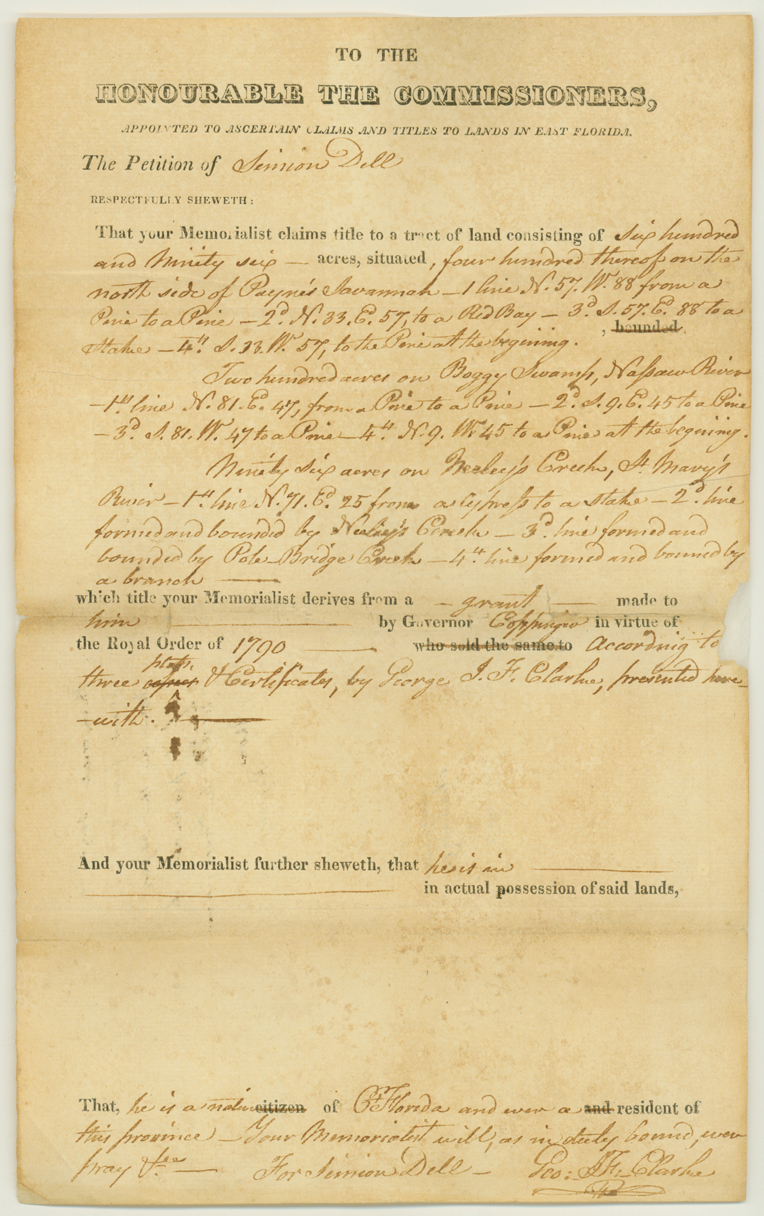 TO THE
HONOURABLE THE COMMISSIONERS,
APPOINTED TO ASCERTAIN CLAIMS AND TITLES TO LANDS IN EAST FLORIDA.
The Petition of Simion Dell
RESPECTFULLY SHEWETH:
That your Memorialist claims title to a tract of land consisting of six hundred
and Ninety six — acres, situated, four hundred thereof on the
north side of Payne's Savannah — 1 line N. 57. W. 88 from a
Pine to a Pine — 2d. N. 33. E. 57, to a Red Bay — 3d. S. 57. E. 88 to a
, bounded
stake — 4th S. 33. W. 57, to the Pine at the begining.
Two hundred acres on Boggy Swamp, Nassaw River
— 1st line N. 81. E. 47, from a Pine to a Pine — 2d. S. 9. E. 45 to a Pine
— 3d. S. 81. W. 47 to a Pine — 4th N. 9. W. 45 to a Pine at the begining.
Ninety six acres on Creek, St. Mary's
River — 1st line N. 71. E. 25 from a Cypress to a stake — 2d line
formed and bounded by Creek — 3d. line formed and
bounded by Pole Bridge Creek — 4th line formed and bound by
a branch —
which title your Memorialist derives from a — grant — made to
him — by Governor Coppinger in virtue of
the Royal Order of 1790 — who sold the same to according to
plats
three & Certificates, by George J. F. Clarke, presented here-
-with. —
And your Memorialist further sheweth, that he is in —
— in actual possession of said lands,
That, he is a native citizen of Et. Florida and ever a and resident of
this province — Your Memorialist will, as in duty bound, ever
pray &ca — For Simion Dell — Geo: J. F. Clarke